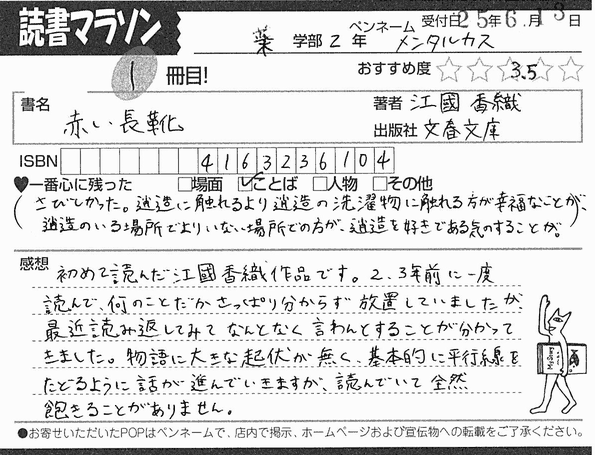 読書マラソン
受付日25年6.月13日
薬 学部 2 年 ペンネーム メンタルカス
1 冊目!
おすすめ度 ☆☆☆☆☆ 3.5
書名 赤い長靴
著者 江國香織
出版社 文春文庫
ISBN 4163236104
♥一番心に残った □場面 ☑ことば □人物 □その他
(さびしかった。逍造に触れるより逍造の洗濯物に触れる方が幸福なことが、
逍造のいる場所でよりいない場所での方が、逍造を好きである気のすることが。)
感想
初めて読んだ江國香織作品です。2、3年前に一度
読んで、何のことだかさっぱり分からず放置していましたが、
最近読み返してみてなんとなく言わんとすることが分かって
きました。物語に大きな起伏が無く、基本的に平行線を
たどるように話が進んでいきますが、読んでいて全然
飽きることがありません。
●お寄せいただいたPOPはペンネームで、店内で掲示、ホームページおよび宣伝物への転載をご了承ください。